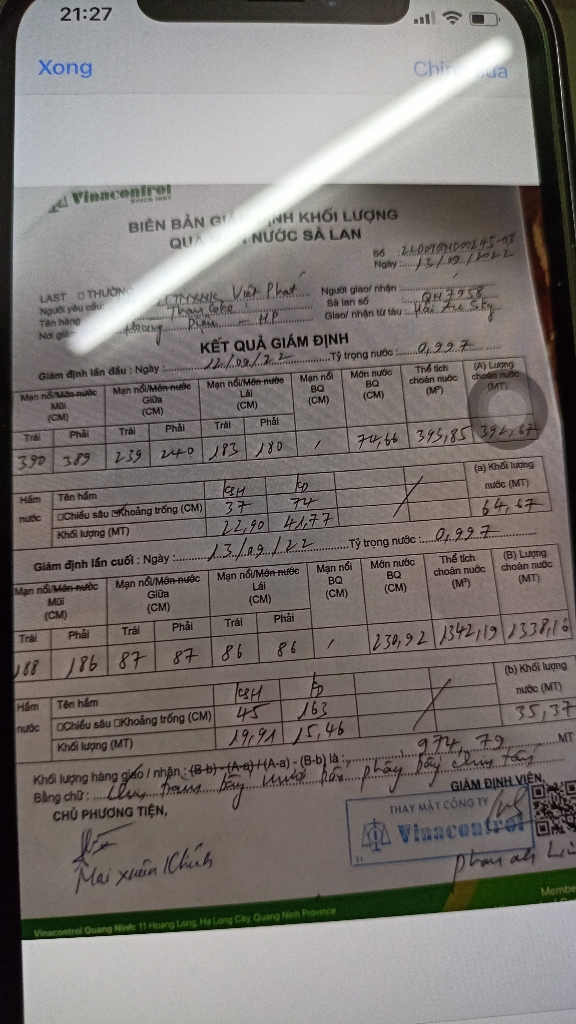 21:27
Xong
Vinacontrol
SINCE 1957
BIÊN BẢN ĐỊNH KHỐI LƯỢNG
QUA NƯỚC SÀ LAN
Số
Ngày: 13/09/2022
LAST THƯỜNG
Người yêu cầu: Việt Phát
Người giao/ nhận
Tên hàng Than Coke
Sà lan số QN 7958
Nơi giám Hoàng Diệu - HP
Giao/ nhận từ tàu: Hải Âu Sky
KẾT QUẢ GIÁM ĐỊNH
Giám định lần đầu : Ngày : 12/09/22 Tỷ trọng nước : 0,997
Mạn nổi/Món nước Mũi (CM) Mạn nổi/Món nước Giữa (CM) Mạn nổi/Món nước Lái (CM) Mạn nổi BQ (CM) Món nước BQ (CM) Thể tích choán nước (M³) (A) Lượng choán nước (MT)
Trái Phải Trái Phải Trái Phải
390 389 239 240 183 180 / 74,66 395,85
Hầm nước Tên hầm KSH KD (a) Khối lượng nước (MT)
Chiều sâu Khoảng trống (CM) 37 74
Khối lượng (MT) 22,90 41,77 64,67
Giám định lần cuối : Ngày : 13/09/22 Tỷ trọng nước : 0,997
Mạn nổi/Món nước Mũi (CM) Mạn nổi/Món nước Giữa (CM) Mạn nổi/Món nước Lái (CM) Mạn nổi BQ (CM) Món nước BQ (CM) Thể tích choán nước (M³) (B) Lượng choán nước (MT)
Trái Phải Trái Phải Trái Phải
188 186 87 87 86 86 / 230,92 1342,19 1338,16
Hầm nước Tên hầm KSH KD (b) Khối lượng nước (MT)
Chiều sâu Khoảng trống (CM) 45 163
Khối lượng (MT) 19,91 15,46 35,37
Khối lượng hàng giao / nhận : (B-b) - (A-a) / (A-a) - (B-b) là : 974,79 MT
Bằng chữ : Chín trăm bảy mươi phẩy bảy chín tấn
CHỦ PHƯƠNG TIỆN,
GIÁM ĐỊNH VIÊN,
THAY MẶT CÔNG TY
Vinacontrol
Mai Xuân Khích
Phan
Vinacontrol Quang Ninh: 11 Hoang Long, Ha Long City, Quang Ninh Province
Membe